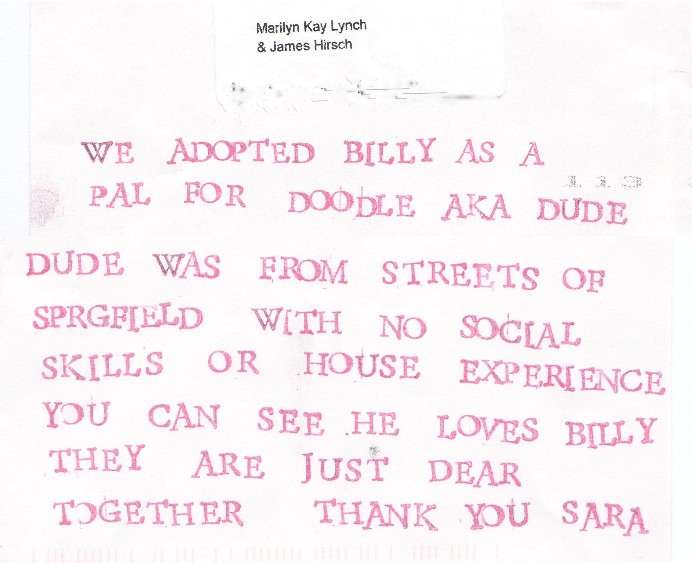 Marilyn Kay Lynch
& James Hirsch
WE ADOPTED BILLY AS A
113
PAL FOR DOODLE AKA DUDE
DUDE WAS FROM STREETS OF
SPRGFIELD WITH NO SOCIAL
SKILLS OR HOUSE EXPERIENCE
YOU CAN SEE HE LOVES BILLY
THEY ARE JUST DEAR
TOGETHER THANK YOU SARA